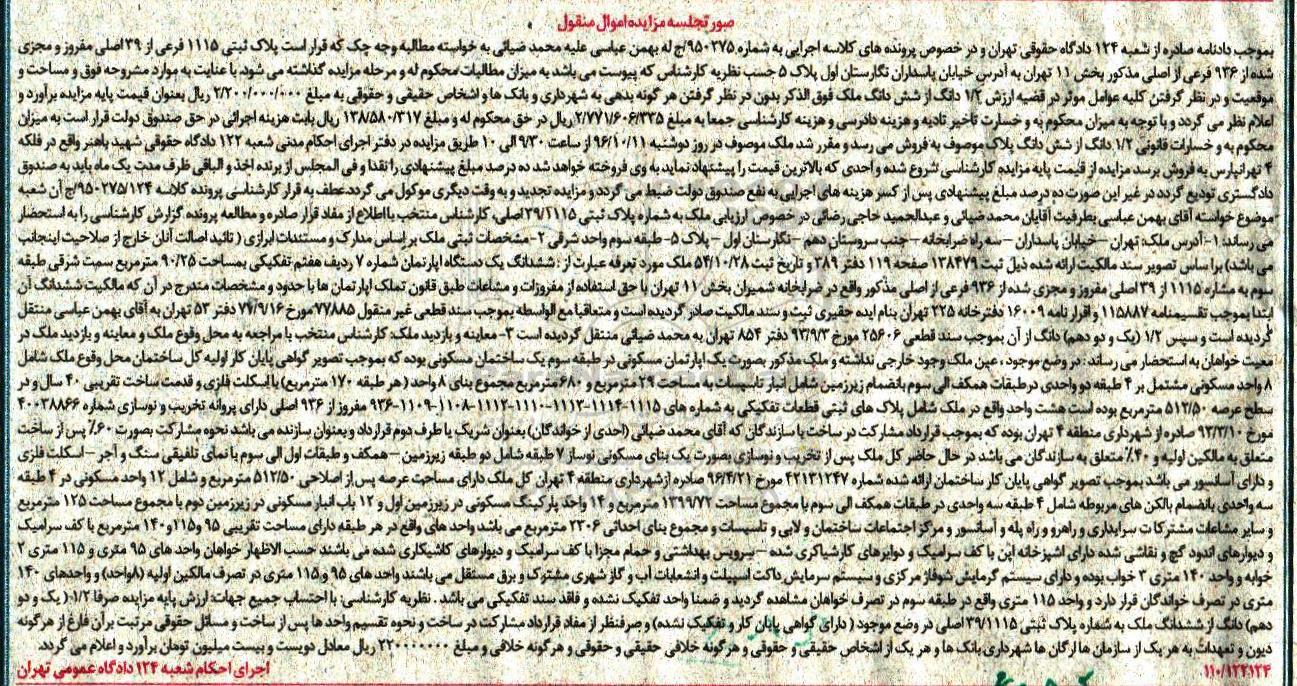 صورتجلسه مزایده اموال منقول
بموجب دادنامه صادره از شعبه ۱۲۴ دادگاه حقوقی تهران و در خصوص پرونده های کلاسه اجرایی به شماره ۹۵۰۲۷۵/ج له بهمن عباسی علیه محمد ضیائی به خواسته مطالبه وجه چک که قرار است پلاک ثبتی ۱۱۱۵ فرعی از ۳۹ اصلی مفروز و مجزی
شده از ۹۳۶ فرعی از اصلی مذکور بخش ۱۱ تهران به آدرس خیابان پاسداران نگارستان اول پلاک ۵ حسب نظریه کارشناس که پیوست می باشد به میزان مطالبات محکوم له و مرحله مزایده گذاشته می شود. با عنایت به موارد مشروحه فوق و مساحت و
موقعیت و در نظر گرفتن کلیه عوامل موثر در قضیه ارزش ۱/۲ دانگ از شش دانگ ملک فوق الذکر بدون در نظر گرفتن هر گونه بدهی به شهرداری و بانک ها و اشخاص حقیقی و حقوقی به مبلغ ۲/۲۰۰/۰۰۰/۰۰۰ ریال بعنوان قیمت پایه مزایده برآورد و
اعلام نظر می گردد و با توجه به میزان محکوم به و خسارت تأخیر تادیه و هزینه دادرسی و هزینه کارشناسی جمعا به مبلغ ۲/۷۷۱/۶۰۶/۳۳۵ ریال در حق محکوم له و مبلغ ۱۳۸/۵۸۰/۳۱۷ ریال بابت هزینه اجرائی در حق صندوق دولت قرار است به میزان
محکوم به و خسارات قانونی ۱/۲ دانگ از شش دانگ پلاک موصوف به فروش می رسد و مقرر شد ملک موصوف در روز دوشنبه ۹۶/۱۰/۱۱ از ساعت ۹/۳۰ الی ۱۰ طریق مزایده در دفتر اجرای احکام مدنی شعبه ۱۲۲ دادگاه حقوقی شهید باهنر واقع در فلکه
۴ تهرانپارس به فروش برسد مزایده از قیمت پایه مزایده کارشناسی شروع شده و احدی که بالاترین قیمت را پیشنهاد نماید به وی فروخته خواهد شد ده درصد مبلغ پیشنهادی را نقدا و فی المجلس از برنده اخذ و الباقی ظرف مدت یک ماه باید به صندوق
دادگستری تودیع گردد در غیر این صورت ده درصد مبلغ پیشنهادی پس از کسر هزینه های اجرایی به نفع صندوق دولت ضبط می گردد و مزایده تجدید و به وقت دیگری موکول می گردد عطف به قرار کارشناسی پرونده کلاسه ۹۵۰۲۷۵/۱۲۴/ج آن شعبه
موضوع خواسته آقای بهمن عباسی بطرفیت آقایان محمد ضیائی و عبدالحمید حاجی رضائی در خصوص ارزیابی ملک به شماره پلاک ثبتی ۳۹/۱۱۱۵ اصلی، کارشناس منتخب با اطلاع از مفاد قرار صادره و مطالعه پرونده گزارش کارشناسی را به استحضار
می رساند: ۱- آدرس ملک: تهران – خیابان پاسداران – سه راه ضرابخانه – جنب سروستان دهم – نگارستان اول – پلاک ۵- طبقه سوم واحد شرقی ۲- مشخصات ثبتی ملک بر اساس مدارک و مستندات ابرازی ( تائید اصالت آنان خارج از صلاحیت اینجانب
می باشد) برا ساس تصویر سند مالکیت ارائه شده ذیل ثبت ۱۳۸۴۷۹ صفحه ۱۱۹ دفتر ۳۸۹ و تاریخ ثبت ۵۴/۱۰/۲۸ ملک مورد تعرفه عبارت از : ششدانگ یک دستگاه اپارتمان شماره ۷ ردیف هفتم تفکیکی بمساحت ۹۰/۲۵ مترمربع سمت شرقی طبقه
سوم به مشاره ۱۱۱۵ از ۳۹ اصلی مفروز و مجزی شده از ۹۳۶ فرعی از اصلی مذکور واقع در ضرابخانه شمیران بخش ۱۱ تهران با حق استفاده از مفروزات و مشاعات طبق قانون تملک اپارتمان ها با حدود و مشخصات مندرج در آن که مالکیت ششدانگ آن
ابتدا بموجب تقسیمنامه ۱۱۵۸۸۷ و اقرار نامه ۱۶۰۰۹ دفترخانه ۲۲۵ تهران بنام ایده حقیری ثبت و سند مالکیت صادر گردیده است و متعاقبا مع الواسطه بموجب سند قطعی غیر منقول ۷۷۸۸۵ مورخ ۷۷/۹/۱۶ دفتر ۵۳ تهران به آقای بهمن عباسی منتقل
گردیده است و سپس ۱/۲ (یک و دو دهم) دانگ از آن بموجب سند قطعی ۲۵۶۰۶ مورخ ۹۳/۹/۳ دفتر ۸۵۴ تهران به محمد ضیائی منتقل گردیده است ۳- معاینه و بازدید ملک: کارشناس منتخب با مراجعه به محل وقوع ملک و معاینه و بازدید ملک در
معیت خواهان به استحضار می رساند : در وضع موجود ، عین ملک وجود خارجی نداشته و ملک مذکور بصورت یک اپارتمان مسکونی در طبقه سوم یک ساختمان مسکونی بوده که بموجب تصویر گواهی پایان کار اولیه کل ساختمان محل وقوع ملک شامل
۸ واحد مسکونی مشتمل بر ۴ طبقه دو واحدی درطبقات همکف الی سوم بانضمام زیرزمین شامل انبار تاسیسات به مساحت ۲۹ مترمربع و ۶۸۰ مترمربع مجموع بنای ۸ واحد ( هر طبقه ۱۷۰ مترمربع) با اسکلت فلزی و قدمت ساخت تقریبی ۴۰ سال و در
سطح عرصه ۵۱۲/۵۰ مترمربع بوده است هشت واحد واقع در ملک شامل پلاک های ثبتی قطعات تفکیکی به شماره های ۱۱۱۵-۱۱۱۴-۱۱۱۳-۱۱۱۰-۱۱۱۲-۱۱۰۸-۱۱۰۹-۹۳۶ مفروز از ۹۳۶ اصلی دارای پروانه تخریب و نوسازی شماره ۴۰۰۳۸۸۶۶
مورخ ۹۳/۳/۱۰ صادره از شهرداری منطقه ۴ تهران بوده که بموجب قرارداد مشارکت در ساخت با سازندگان که آقای محمد ضیائی (احدی از خواندگان) بعنوان شریک یا طرف دوم قرارداد و بعنوان سازنده می باشد نحوه مشارکت بصورت ۶۰٪ پس از ساخت
متعلق به مالکین اولیه و ۴۰٪ متعلق به سازندگان می باشد در حال حاضر کل ملک پس از تخریب و نوسازی بصورت یک بنای مسکونی نوساز ۷ طبقه شامل دو طبقه زیرزمین – همکف و طبقات اول الی سوم با نمای تلفیقی سنگ و آجر – اسکلت فلزی
و دارای آسانسور می باشد بموجب تصویر گواهی پایان کار ساختمان ارائه شده شماره ۴۲۱۳۱۲۴۷ مورخ ۹۶/۴/۲۱ صادره ازشهرداری منطقه ۴ تهران کل ملک دارای مساحت عرصه پس از اصلاحی ۵۱۲/۵۰ مترمربع و شامل ۱۲ واحد مسکونی در ۴ طبقه
سه واحدی بانضمام بالکن های مربوطه شامل ۴ طبقه سه واحدی در طبقات همکف الی سوم با مجموع مساحت ۱۳۹۹/۷۲ مترمربع و ۱۴ واحد پارکینگ مسکونی در زیرزمین اول و ۱۲ باب انبار مسکونی در زیرزمین دوم با مجموع مساحت ۱۲۵ مترمربع
و سایر مشاعات مشترکات سرایداری و راهرو و راه پله و آسانسور و مرکز اجتماعات ساختمان و لابی و تاسیسات و مجموع بنای احداثی ۲۳۰۶ مترمربع می باشد واحد های واقع در هر طبقه دارای مساحت تقریبی ۹۵ و۱۱۵و ۱۴۰ مترمربع با کف سرامیک
و دیوارهای اندود گچ و نقاشی شده دارای اشپزخانه اپن با کف سرامیک و دوایرهای کارشباکری شده – سرویس بهداشتی و حمام مجزا با کف سرامیک و دیوارهای کاشیکاری شده می باشند حسب الاظهار خواهان واحد های ۹۵ متری و ۱۱۵ متری ۲
خوابه و واحد ۱۴۰ متری ۳ خواب بوده و دارای سیستم گرمایش شوفاژ مرکزی و سیستم سرمایش داکت اسپیلت و انشعابات آب و گاز شهری مشترک و برق مستقل می باشند واحد های ۹۵ و ۱۱۵ متری در تصرف مالکین اولیه (۸واحد) و واحدهای ۱۴۰
متری در تصرف خواندگان قرار دارد و واحد ۱۱۵ متری واقع در طبقه سوم در تصرف خواهان مشاهده گردید و ضمنا واحد تفکیک نشده و فاقد سند تفکیکی می باشد . نظریه کارشناسی: با احتساب جمیع جهات: ارزش پایه مزایده صرفا ۱/۲ ( یک و دو
دهم) دانگ از ششدانگ ملک به شماره پلاک ثبتی ۳۹/۱۱۱۵ اصلی در وضع موجود ( دارای گواهی پایان کار و تفکیک نشده) و صرفنظر از مفاد قرارداد مشارکت در ساخت و نحوه تقسیم واحد ها پس از ساخت و مسائل حقوقی مرتبت برآن فارغ از هرگونه
دیون و تعهدات به هر یک از سازمان ها ارگان ها شهرداری بانک ها و هر یک از اشخاص حقیقی و حقوقی و هرگونه خلافی حقیقی و حقوقی و هرگونه خلافی و مبلغ ۲۲۰۰۰۰۰۰۰۰ ریال معادل دویست و بیست میلیون تومان برآورد و اعلام می گردد.
۱۱۰/۱۲۲۱۲۴ اجرای احکام شعبه ۱۲۴ دادگاه عمومی تهران